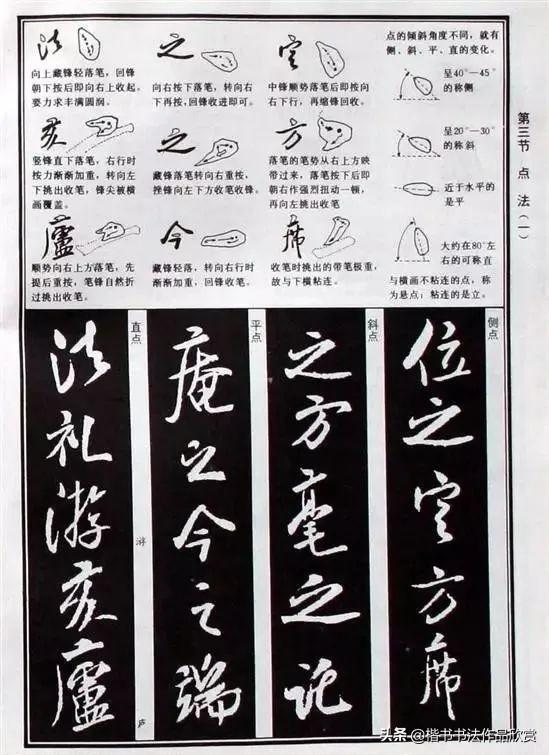 第三节 点法(一)
点的倾斜角度不同,就有
侧、斜、平、直的变化。
呈40°—45°
的称侧
呈20°—30°
的称斜
近于水平的
是平
大约在80°左
右的可称直
与横画不粘连的点,称
为悬点;粘连的是立。
定
中锋顺势落笔后即按向
右下行,再缩锋回收。
方
落笔的笔势从右上方映
带过来,落笔按下后即
朝右作强烈扭动一顿,
再向左挑出收笔
席
收笔时挑出的带笔极重,
故与下横粘连。
之
向右按下落笔,转向右
下再按,回锋收进即可。
之
藏锋落笔转向右重按,
挫锋向左下方收笔收锋。
今
藏锋轻落,转向右行时
渐渐加重,回锋收笔。
法
向上藏锋轻落笔,回锋
朝下按后即向右上收起。
要力求丰满圆润。
亥
竖锋直下落笔,右行时
按力渐渐加重,转向左
下挑出收笔,锋尖被横
画覆盖。
廬
顺势向右上方落笔,先
提后重按,笔锋自然折
过挑出收笔。
侧点
位之定方席
斜点
之方毫之
平点
庵之今之端
直点
法礼游亥廬
游
庐
头条 @楷书书法作品欣赏